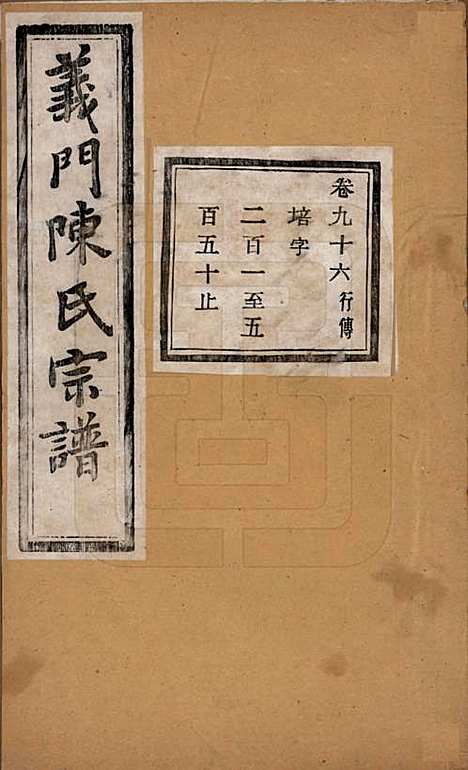 義門陳氏宗譜
卷九十六行傳
培字
二百一至五
百五十止